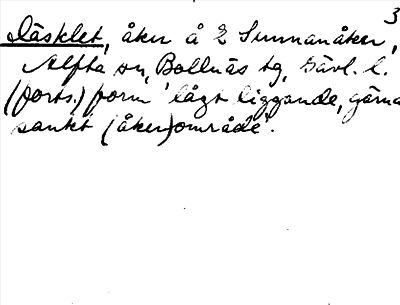 3
Däsklet, åker å 2 Sunnanåker,
Alfta sn, Bollnäs tg, Gävl. l.
(forts.) form 'lågt liggande, gärna
sankt (åker)område'.